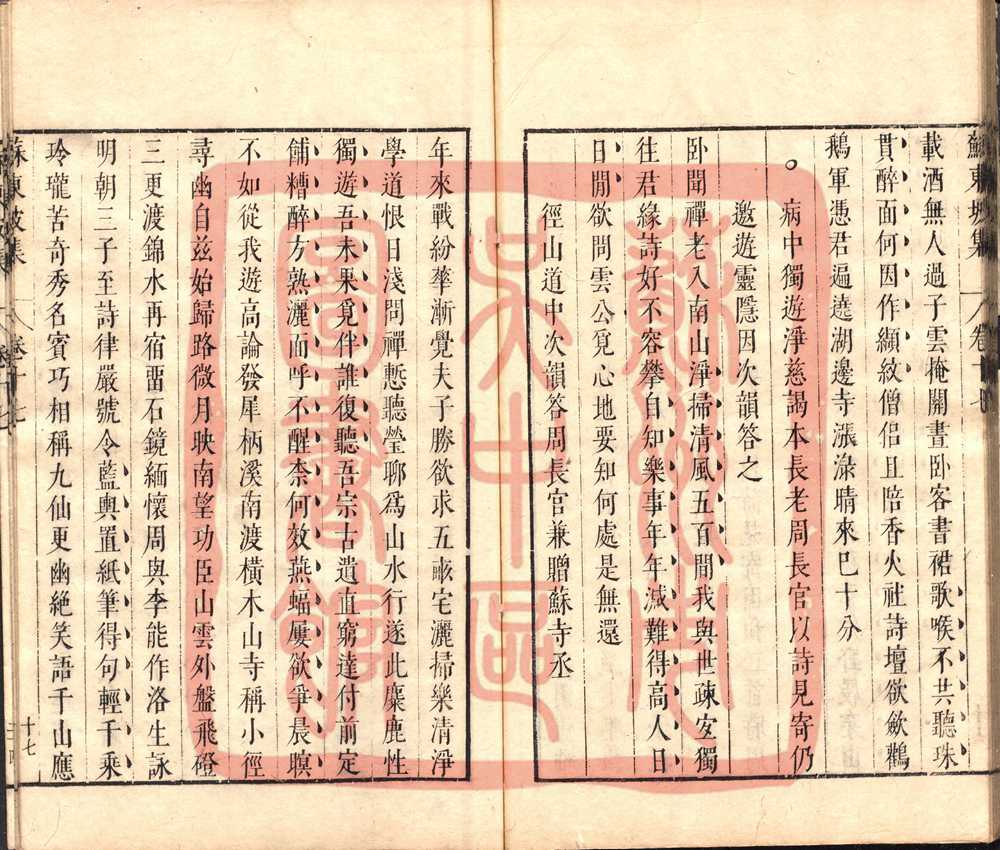 蘇東坡集 卷十七
載酒無人過子雲掩關晝卧客書裙歌喉不共聽珠
貫醉面何因作纈紋僧侣且陪香火社詩壇欲歛鸛
鵝軍憑君遍遶湖邊寺漲淥晴來巳十分
病中獨遊淨慈謁本長老周長官以詩見寄仍
邀遊靈隱因次韻答之
卧聞禪老入南山淨掃清風五百間我與世疎宐獨
往君緣詩好不容攀自知樂事年年減難得高人日
日閒欲問雲公覓心地要知何處是無還
徑山道中次韻答周長官兼贈蘇寺丞
年來戰紛華漸覺夫子勝欲求五畝宅灑掃樂清淨
學道恨日淺問禪慙聽瑩聊爲山水行遂此麋鹿性
獨遊吾未果覓伴誰復聽吾宗古遺直窮達付前定
餔糟醉方熟灑面呼不醒奈何效燕蝠屢欲爭晨暝
不如從我遊高論發犀柄溪南渡橫木山寺稱小徑
尋幽自兹始歸路微月映南望功臣山雲外盤飛磴
三更渡錦水再宿畱石鏡緬懷周與李能作洛生詠
明朝三子至詩律嚴號令籃輿置紙筆得句輕千乘
玲瓏苦奇秀名實巧相稱九仙更幽絶笑語千山應
蘇東坡集 卷十七
十七
蘇州市
吴中區
圖書館